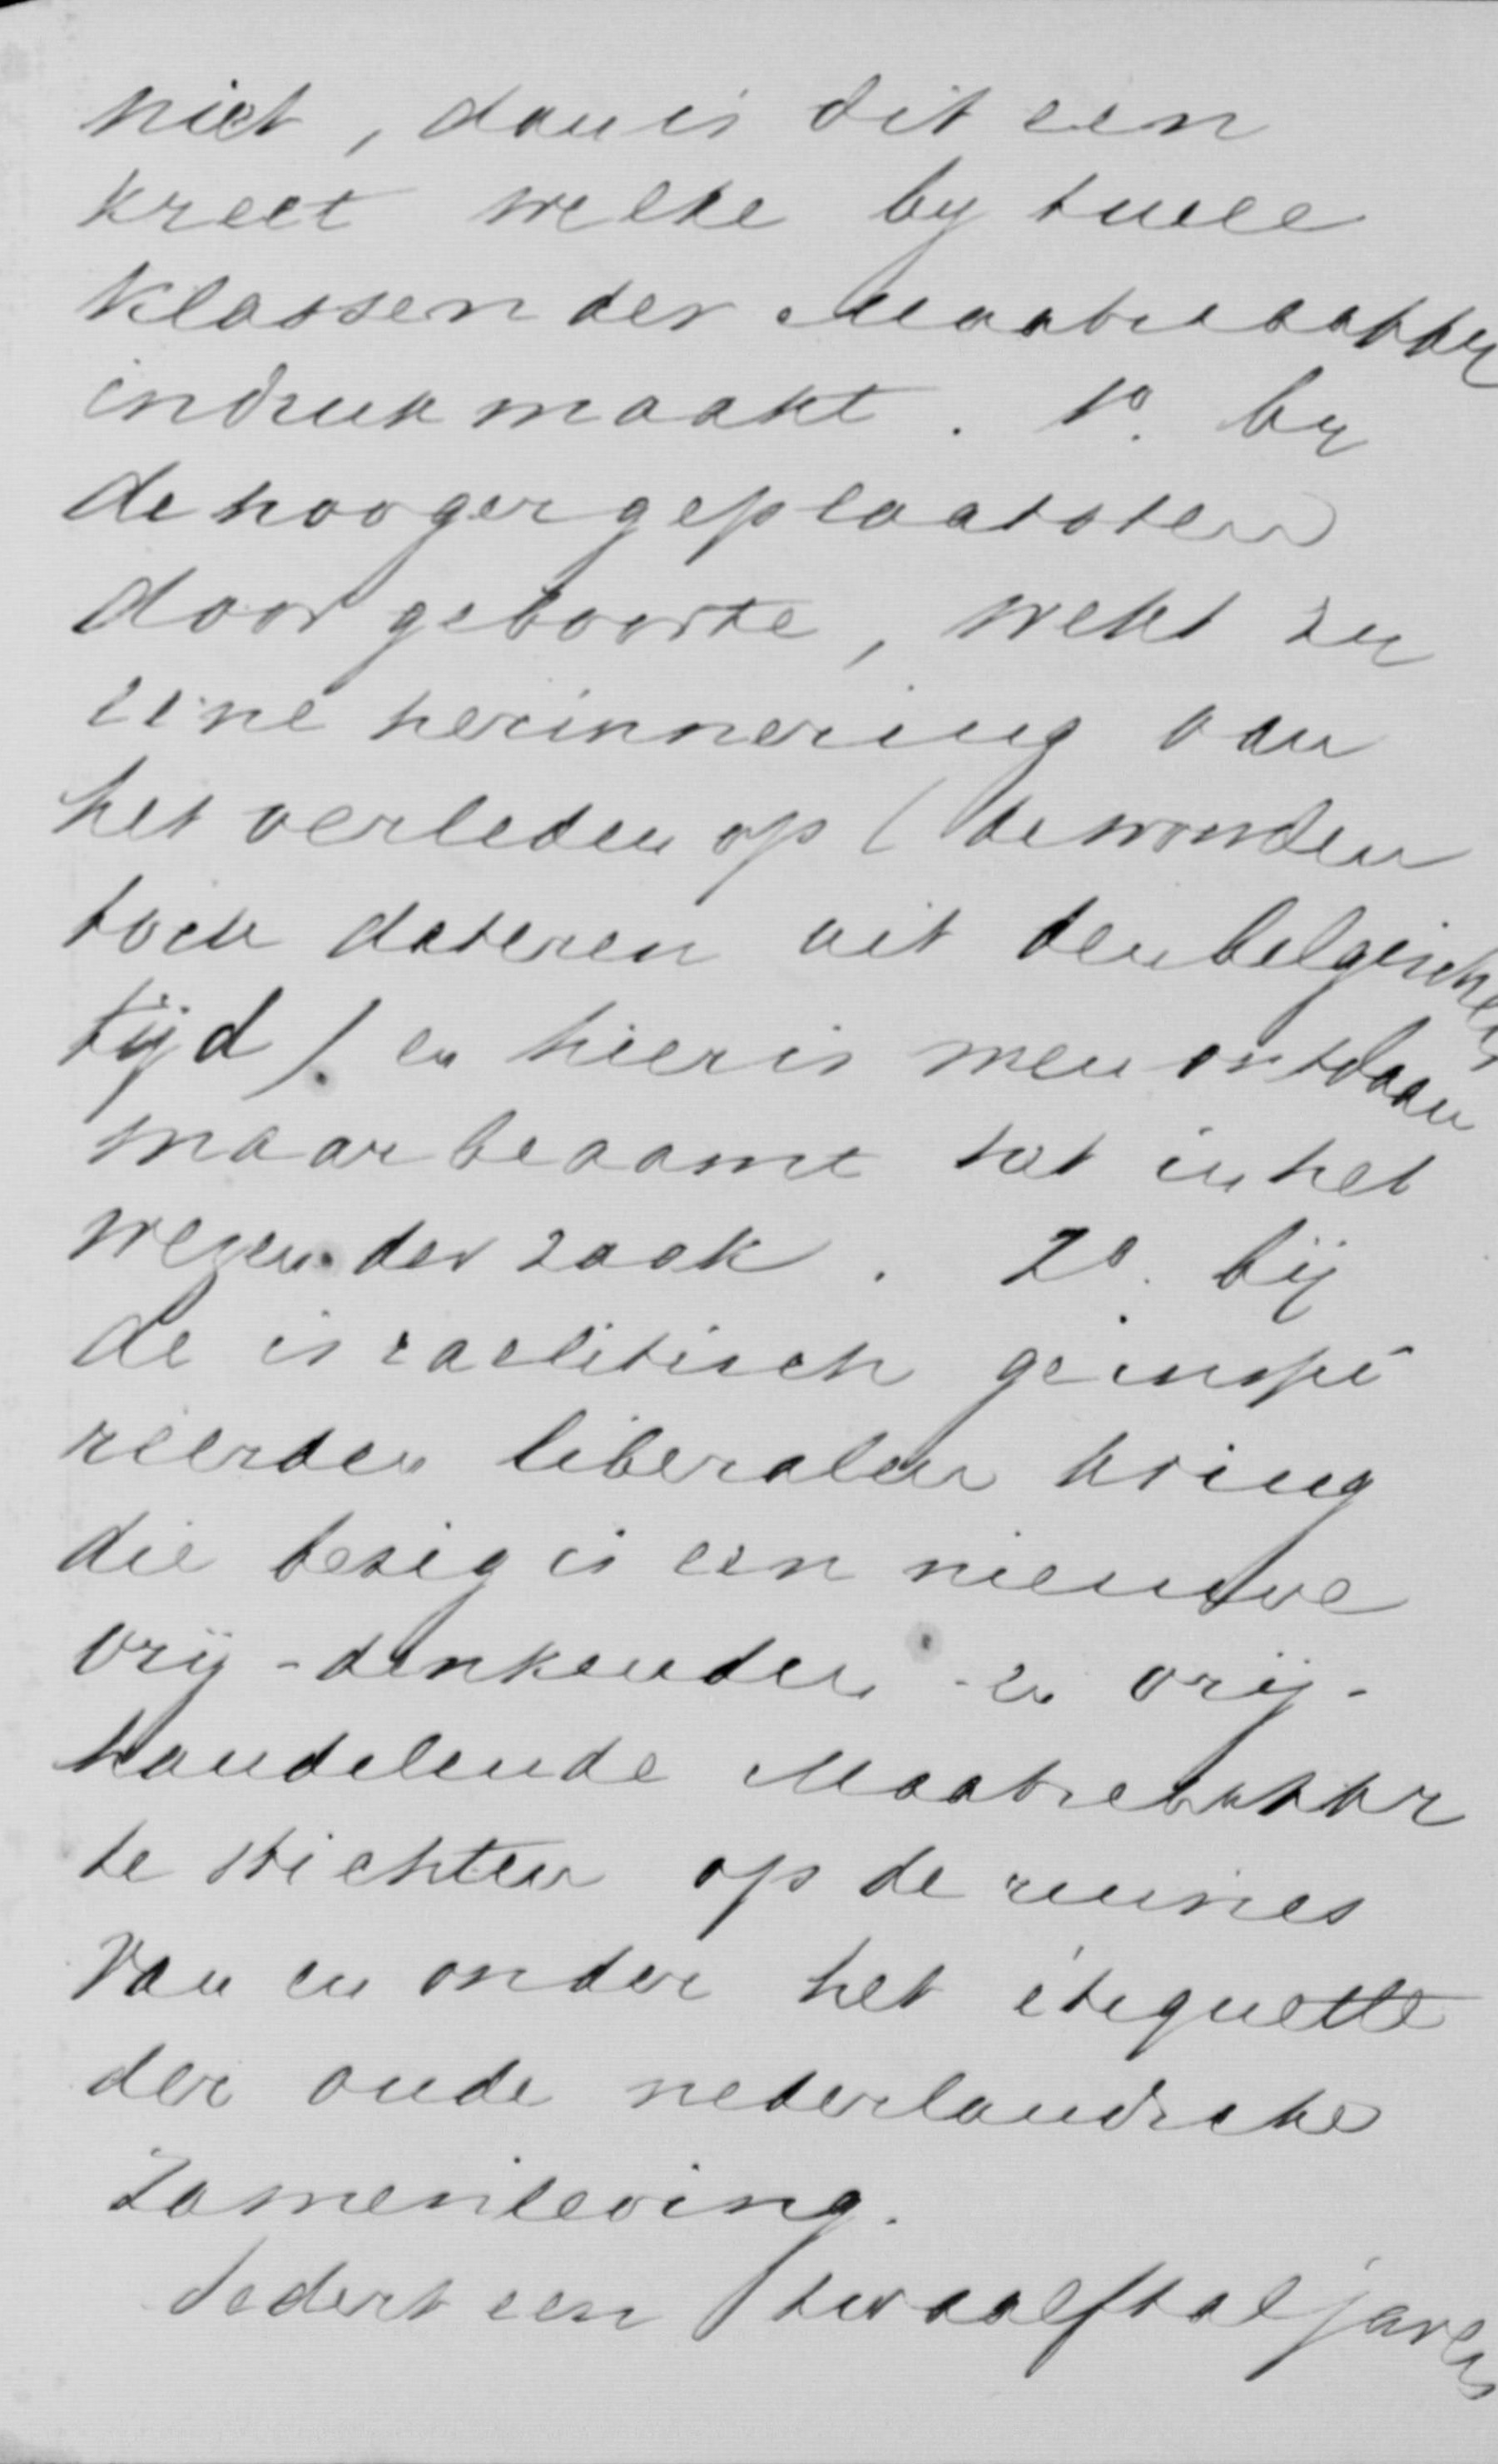 niet, dan is dit een
kreet welke by twee
klassen der Maatschappy
indruk maakt. 1o. by
de hooger geplaatsten
door geboorte, wekt zy
eene herinnering van
het verleden op (de wonden
toch dateren uit den belgischen
tijd) en hier is men ontdaan
maar beaamt tot in het
wezen der zaak. 2o. bij
de israelitisch geinspi
reerden liberalen kring
die bezig is een nieuwe
vrij-denkenden en vrij-
handelende Maatschappy
te stichten op de ruines
van en onder het étiquette
der oude nederlandsche
Zamenleving.
Sedert een twaalftal jaren